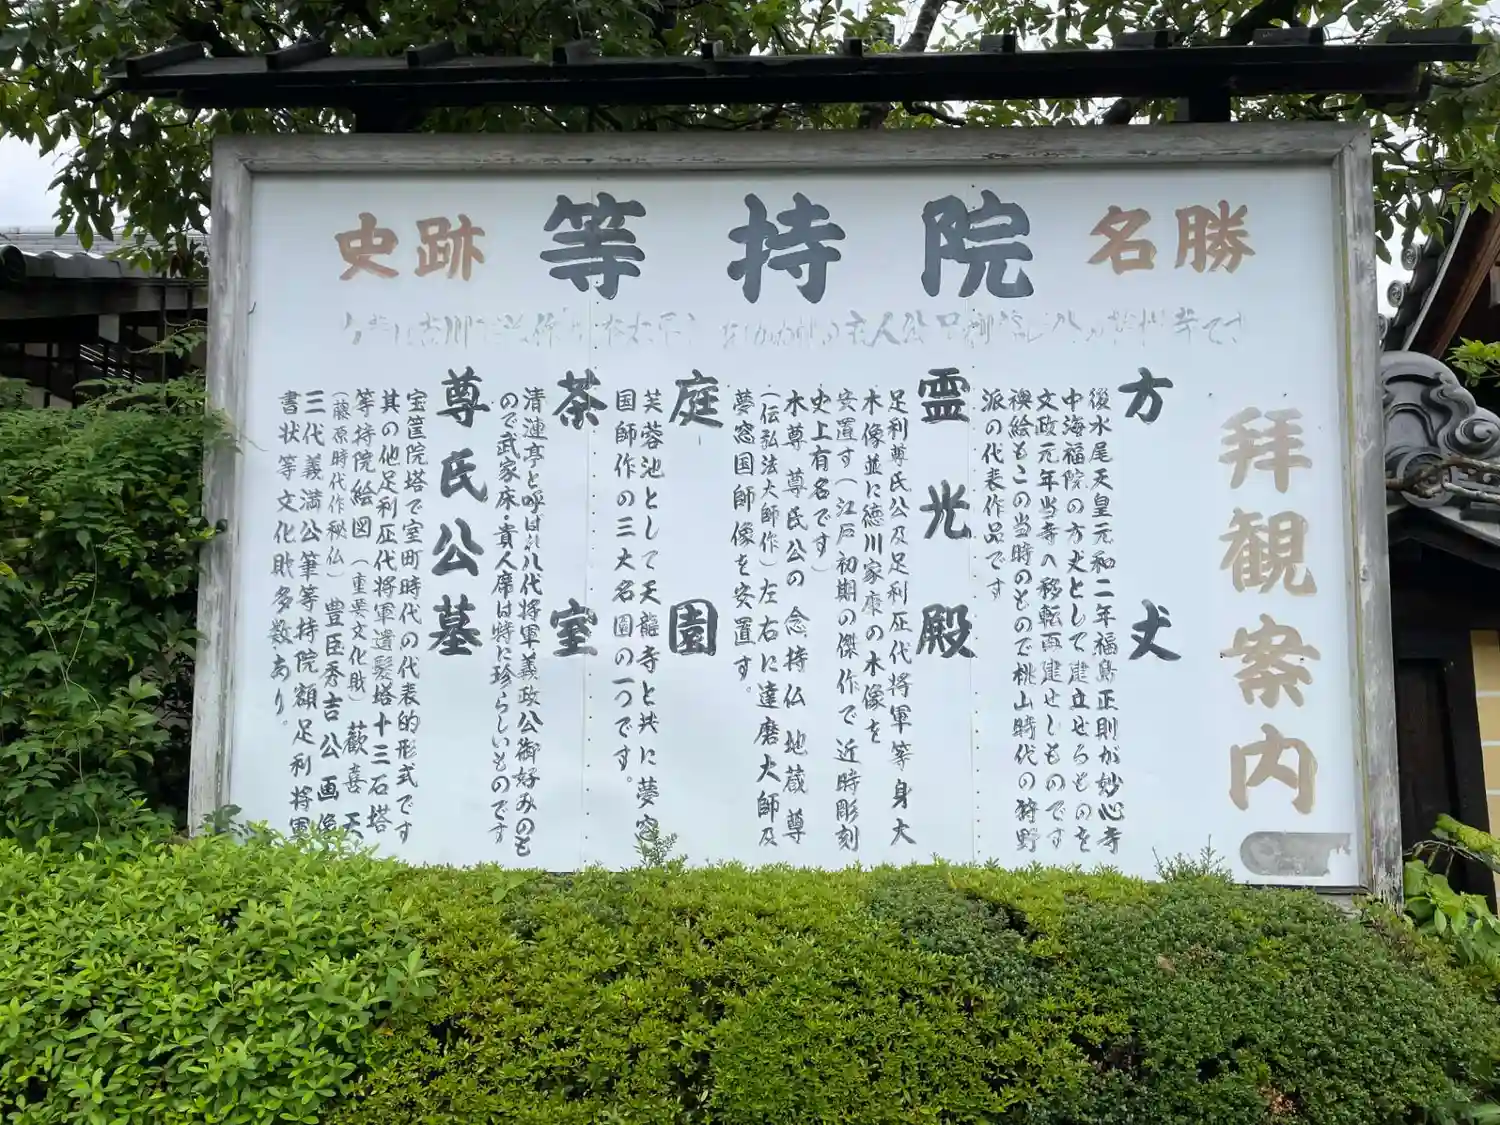 史跡 等持院 名勝
拝観案内
方丈
後水尾天皇元和二年福島正則が妙心寺
中海福院の方丈として建立せるものを
文政元年当寺へ移転再建せしものです
襖絵もこの当時のもので桃山時代の狩野
派の代表作品です
霊光殿
足利尊氏公及足利歴代将軍等身大
木像並に徳川家康の木像を
安置す(江戸初期の傑作で近時彫刻
史上有名です)
本尊 尊氏公の 念持仏 地蔵尊
(伝弘法大師作)左右に達磨大師及
夢窓国師像を安置す。
庭園
芙蓉池として天龍寺と共に夢窓
国師作の三大名園の一つです。
茶室
清漣亭と呼ばれ八代将軍義政公御好みのも
ので武家床・貴人席は特に珍らしいものです
尊氏公墓
宝筐院塔で室町時代の代表的形式です
其の他足利歴代将軍遺髪塔十三石塔
等持院絵図(重要文化財)歓喜天
(藤原時代作秘仏)豊臣秀吉公画像
三代義満公筆等持院額足利将軍
書状等文化財多数あり。